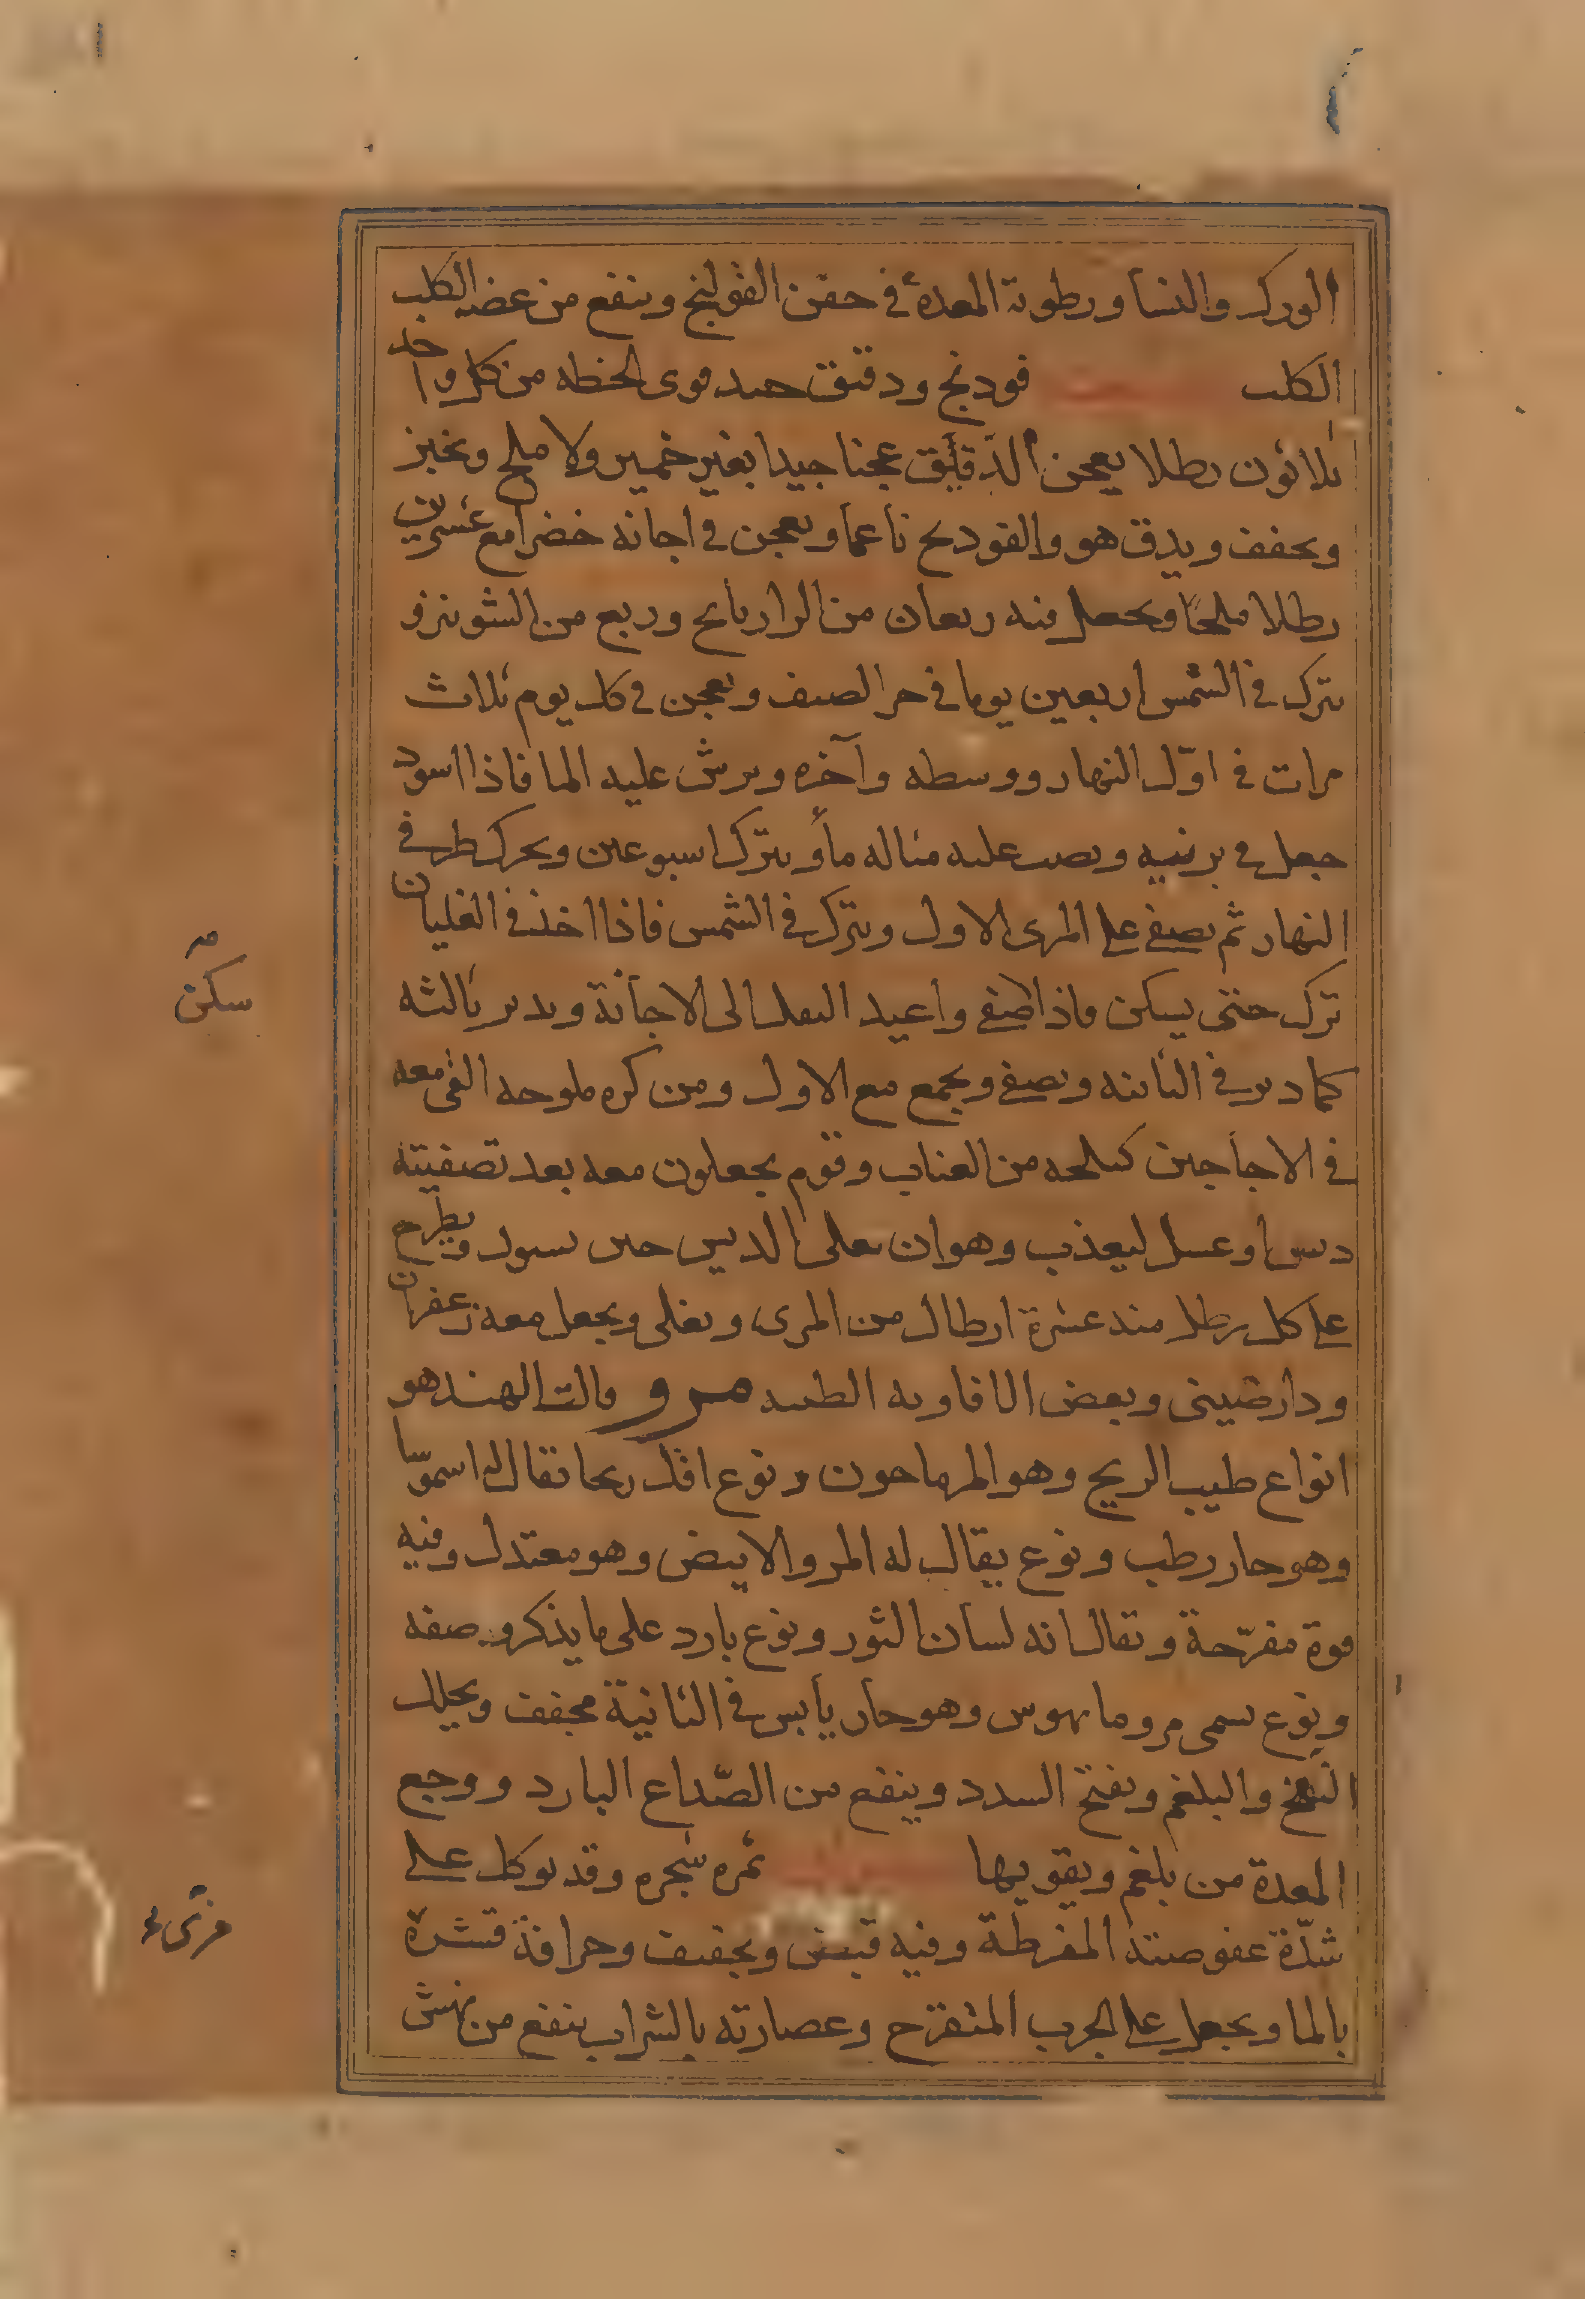 الورك والنسا ورطوبة المعدة في حقن القولنج وينفع من عضه الكلب
الكلب فودنج ودقيق حيد قوى الحنطه من كل واحد
ثلاثون رطلا يعجن الدقيق عجنا جيدا بغير خمير ولا ملح ويخبز
ويجفف ويدق هو والفودنج ناعما ويعجن في اجانه خضرا مع عشرين
رطلا ملحا ويجعل فيه ربعان من الرازيانج وربع من الشونيز و
يترك في الشمس اربعين يوما في حر الصيف ويعجن في كل يوم ثلاث
مرات في اوّل النهار ووسطه وآخره ويرش عليه الما فاذا اسود
جعل في برنيه ويصب عليه مثاله مأ ويترك اسبوعين ويحرك طرفي
النهار ثم يصفى على المرى الاول ويترك في الشمس فاذا اخذ في الغليان
ترك حتى يسكن فاذا صفى واعيد الثفل الى الاجانة ويدبر ثالثه
كما دبر في الثانيه ويصفى ويجمع مع الاول ومن كره ملوحه القى معه
في الاجاجين كيلجه من العناب وقوم يجعلون معه بعد تصفيته
دبسا وعسل ليعذب وهو ان يغلى الدبس حين يسود ويطرح
على كل رطل منه عشرة ارطال من المرى ويغلى ويجعل معه زعفران
ودارصينى وبعض الافاويه الطيبه مرو قالت الهند هو
انواع طيب الريح وهو المرماحون ونوع اقل ريحا يقال له اسموسا
وهو حار رطب ونوع يقال له المرو الابيض وهو معتدل وفيه
قوة مفرّحة ويقال انه لسان الثور ونوع بارد على ما يذكر وصفه
ونوع يسمى مروما بهوس وهو حار يابس في الثانية مجفف ويحلل
النفخ والبلغم ويفتح السدد وينفع من الصّداع البارد ووجع
المعدة من بلغم ويقويها ثمره شجره وقد يوكل على
شدّة عفوصته المفرطة وفيه قبض وتجفيف وحرافة قشرة
بالما ويجعل على الجرب المتقرح وعصارته بالشراب ينفع من نهش
سكن